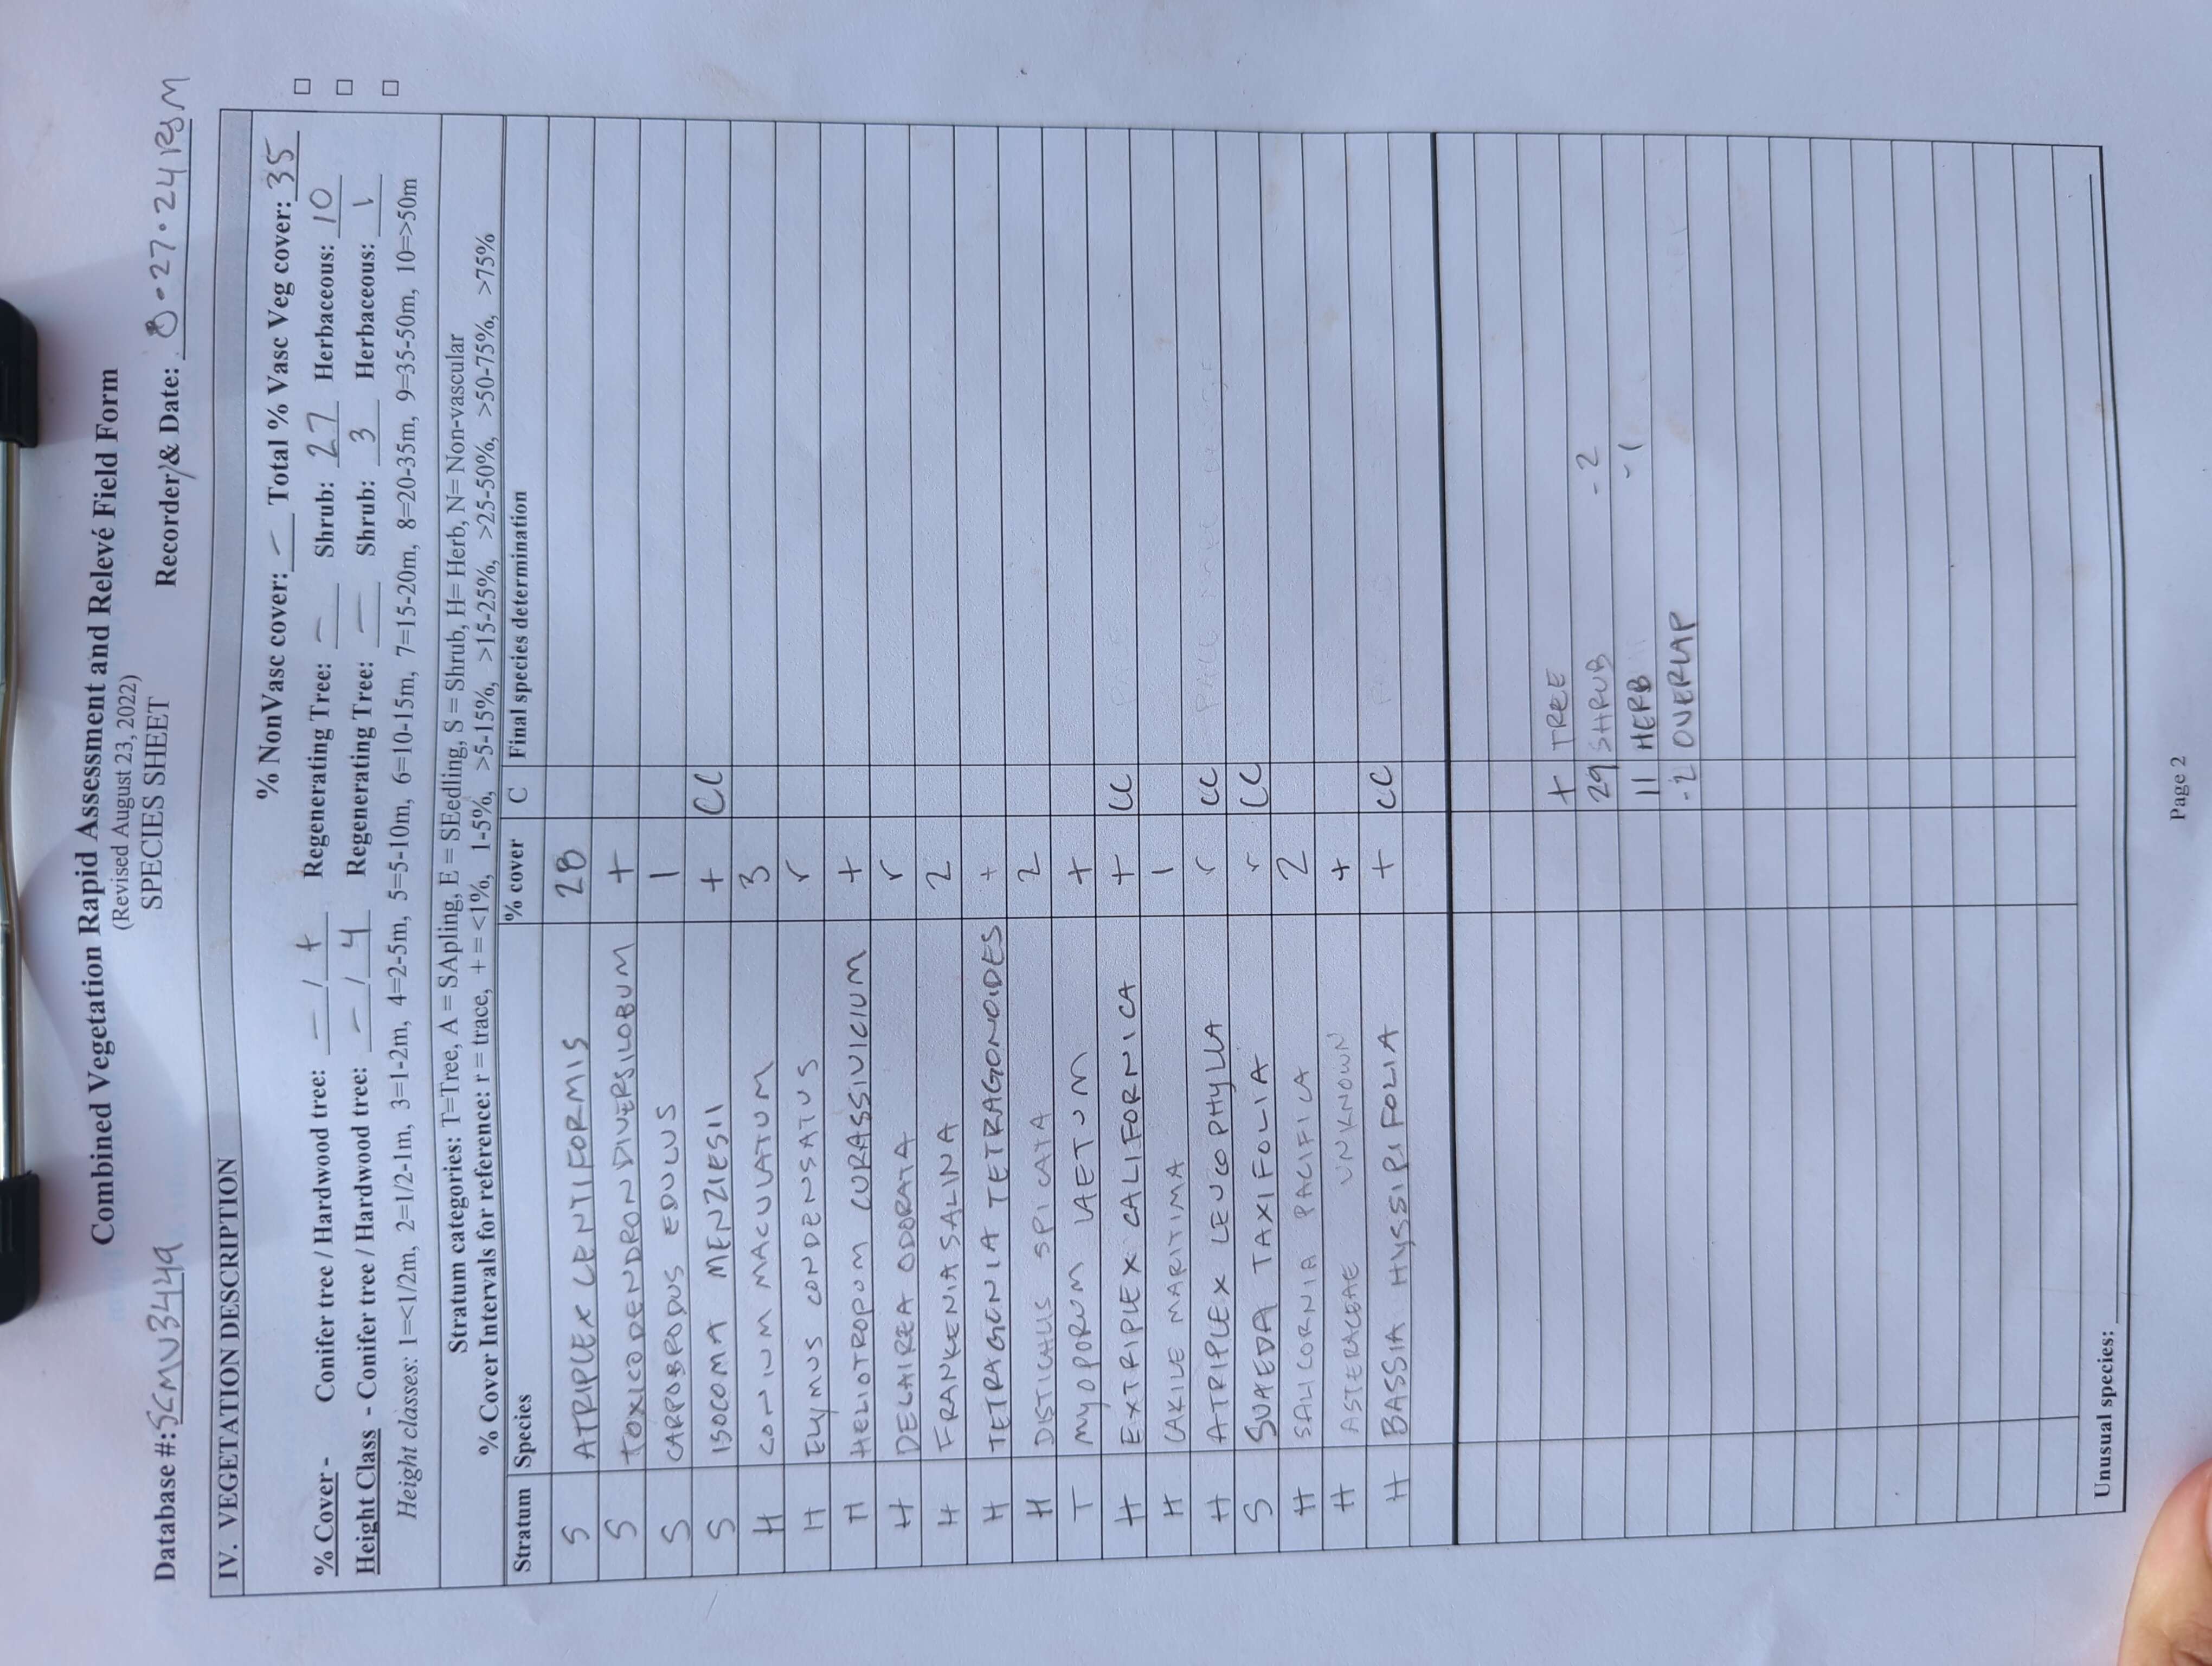 Combined Vegetation Rapid Assessment and Relevé Field Form
(Revised August 23, 2022)
SPECIES SHEET
Database #: SCMU3449 Recorder/& Date: 8-27-24
IV. VEGETATION DESCRIPTION
% NonVasc cover: — Total % Vasc Veg cover: 35
% Cover - Conifer tree / Hardwood tree: — / + Regenerating Tree: — Shrub: 27 Herbaceous: 10
Height Class - Conifer tree / Hardwood tree: — / 4 Regenerating Tree: — Shrub: 3 Herbaceous: 1
Height classes: 1=<1/2m, 2=1/2-1m, 3=1-2m, 4=2-5m, 5=5-10m, 6=10-15m, 7=15-20m, 8=20-35m, 9=35-50m, 10=>50m
Stratum categories: T=Tree, A = SApling, E = SEedling, S = Shrub, H= Herb, N= Non-vascular
% Cover Intervals for reference: r = trace, + = <1%, 1-5%, >5-15%, >15-25%, >25-50%, >50-75%, >75%
Stratum Species % cover C Final species determination
S ATRIPLEX LENTIFORMIS 28
S TOXICODENDRON DIVERSILOBUM +
S CARPOBRODUS EDULUS 1
S ISOCOMA MENZIESII + CC
H CONIUM MACULATUM 3
H ELYMUS CONDENSATUS r
H HELIOTROPUM CURASSIVICIUM +
H DELAIREA ODORATA r
H FRANKENIA SALINA 2
H TETRAGONIA TETRAGONOIDES +
H DISTICHLIS SPICATA 2
T MYOPORUM LAETUM +
H EXTRIPLEX CALIFORNICA + CC
H CAKILE MARITIMA 1
H ATRIPLEX LEUCOPHYLLA r CC
S SUAEDA TAXIFOLIA r CC
H SALICORNIA PACIFICA 2
H ASTERACEAE UNKNOWN +
H BASSIA HYSSIPIFOLIA + CC
+ TREE
29 SHRUB -2
11 HERB -1
-2 OVERLAP
Unusual species:
Page 2